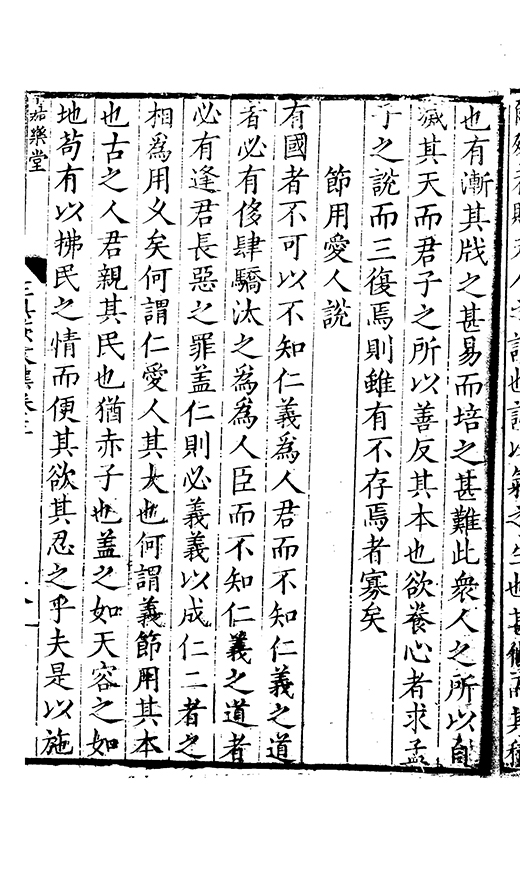 也有漸其戕之甚易而培之甚難此衆人之所以自
滅其天而君子之所以善反其本也欲養心者求孟
子之說而三復焉則雖有不存焉者寡矣
節用愛人說
有國者不可以不知仁義為人君而不知仁義之道
者必有侈肆驕汰之為為人臣而不知仁義之道者
必有逢君長惡之罪盖仁則必義義以成仁二者之
相為用乂矣何謂仁愛人其大也何謂義節用其本
也古之人君親其民也猶赤子也盖之如天容之如
地苟有以拂民之情而便其欲其忍之乎夫是以施
樂堂